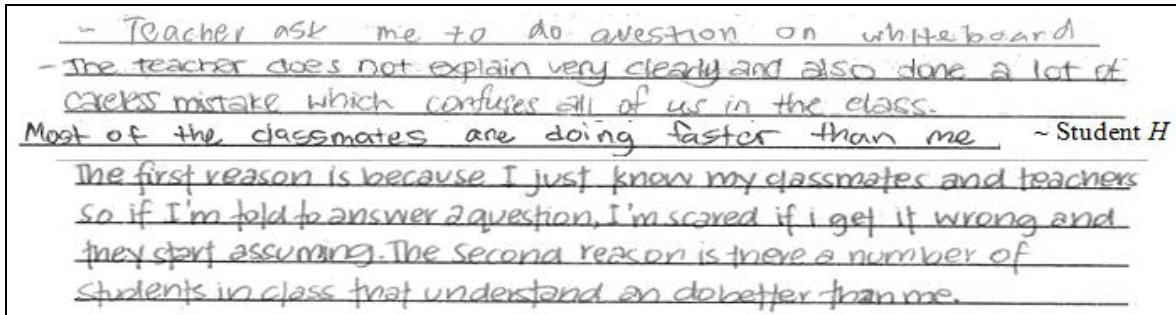 - Teacher ask me to do question on whiteboard
- The teacher does not explain very clearly and also done a lot of
careless mistake which confuses all of us in the class.
Most of the classmates are doing faster than me. ~ Student H
The first reason is because I just know my classmates and teachers
so if I'm told to answer a question, I'm scared if i get it wrong and
they start assuming. The second reason is there a number of
students in class that understand an do better than me.